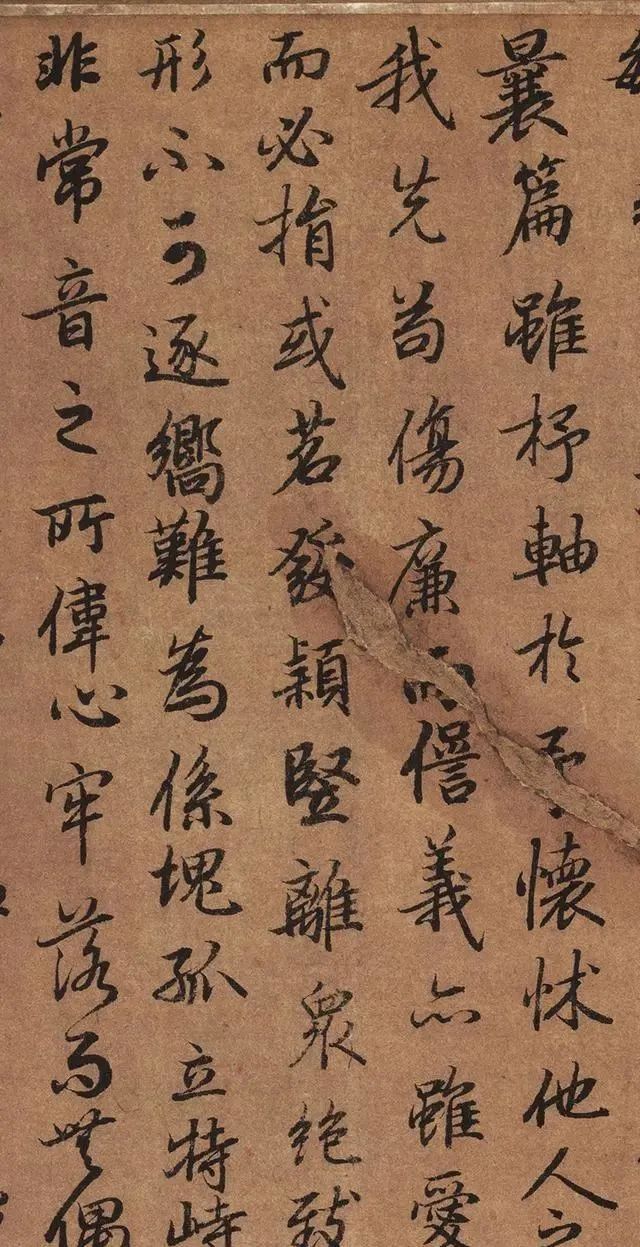 曩篇雖杼軸於予懷怵他人之
我先苟傷廉而諐義亦雖愛
而必捐或苕發穎竪離衆絕致
形不可逐嚮難為係塊孤立特峙
非常音之所偉心牢落而無偶